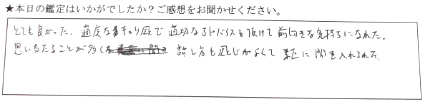 ★本日の鑑定はいかがでしたか?ご感想をお聞かせください。
とても良かった。適度な事チャリ応で適切なアドバイスを頂けて前向きな気持ちになれた。
思い当たることが多く 許し方も感じがよくて素直に聞き入れられた。